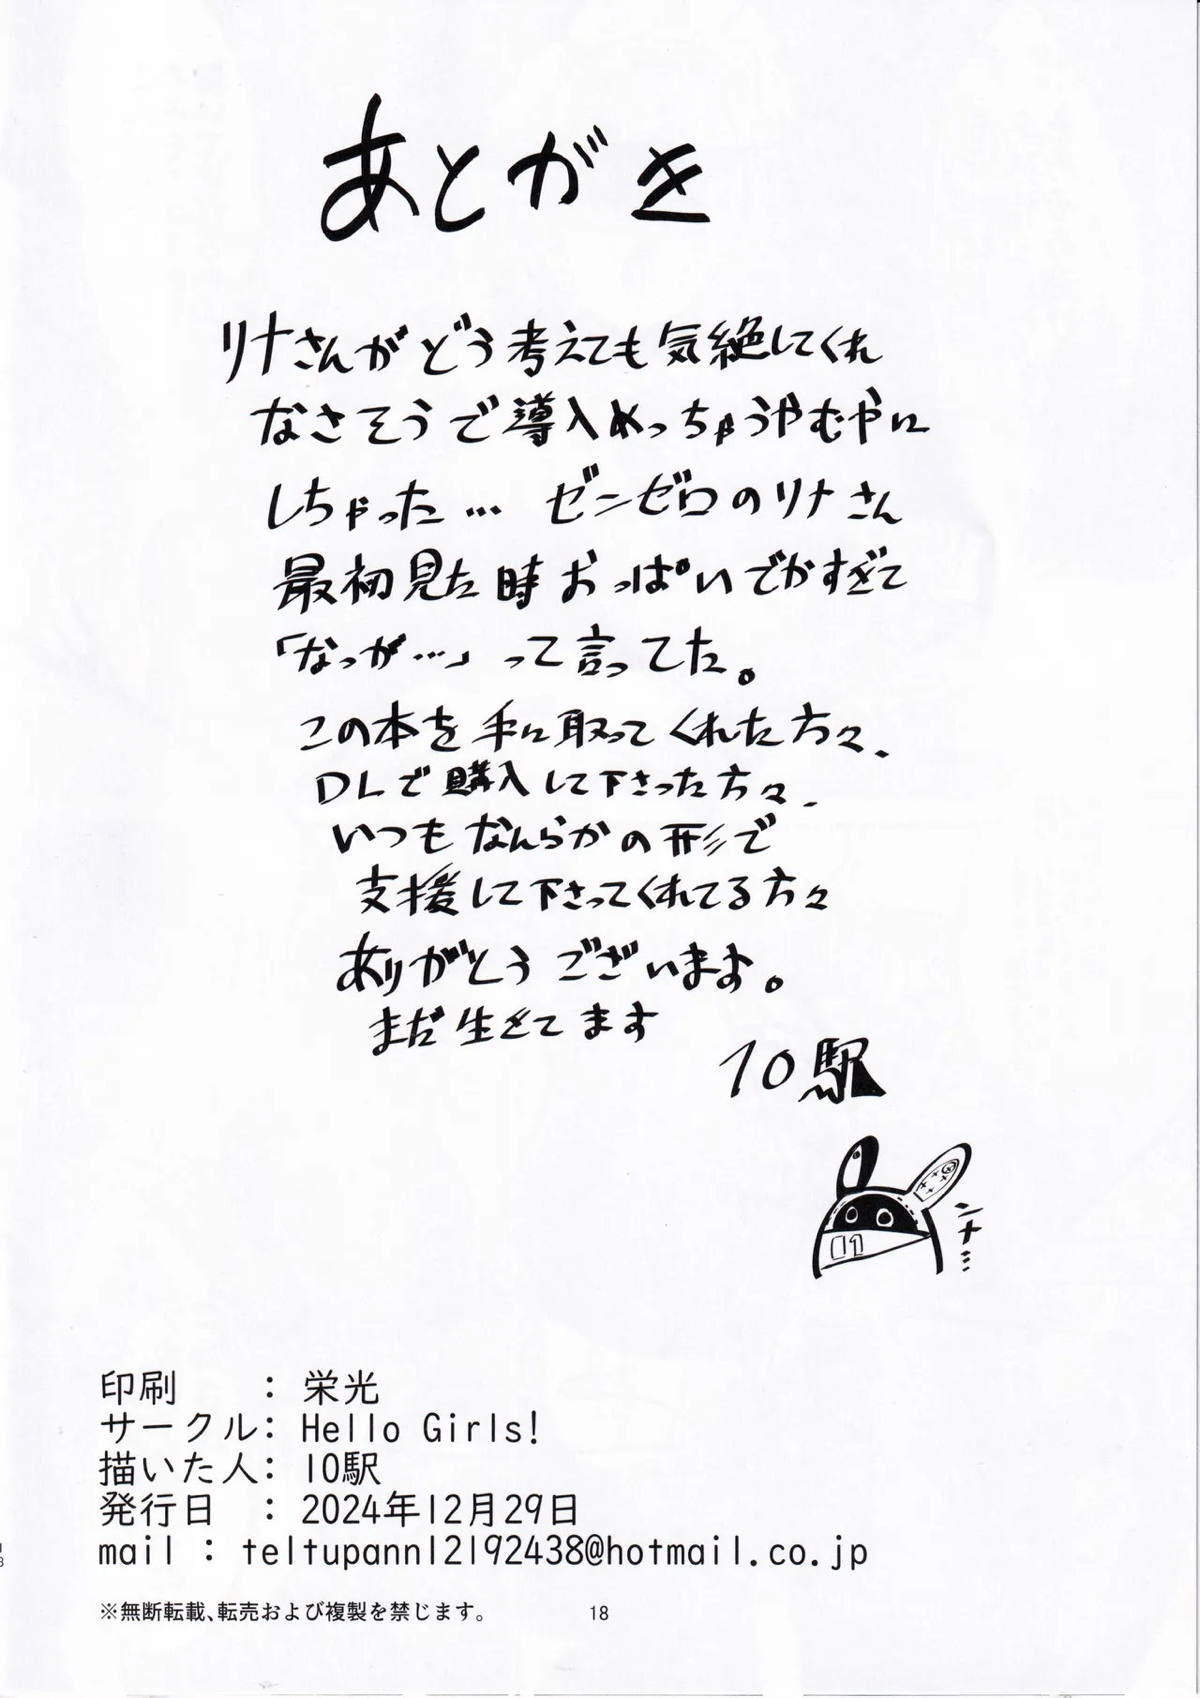 あとがき
リナさんがどう考えても気絶してくれ
なさそうで導入めっちゃうやむやに
しちゃった… ゼンゼロのリナさん
最初見た時おっぱいでかすぎて
「なっが…」って言ってた。
この本を手に取ってくれた方々、
DLで購入して下さった方々、
いつもなんらかの形で
支援して下さってくれてる方々
ありがとうございます。
まだ生きてます
10駅
ンナ…
01
印刷 : 栄光
サークル: Hello Girls!
描いた人: 10駅
発行日 : 2024年12月29日
mail : teltupann12192438@hotmail.co.jp
※無断転載、転売および複製を禁じます。
18